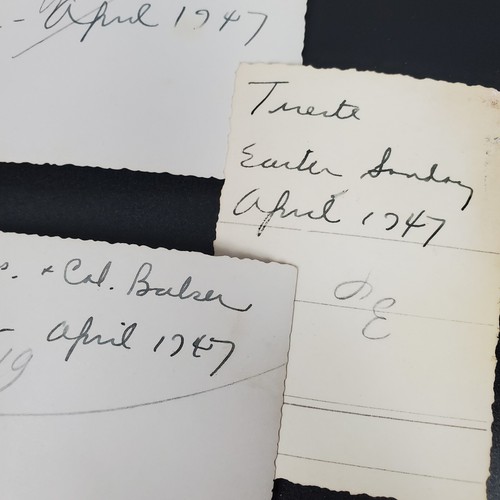 - April 1947
Trieste
Easter Sunday
April 1947
s. + Col. Baker
- April 1947
19
E